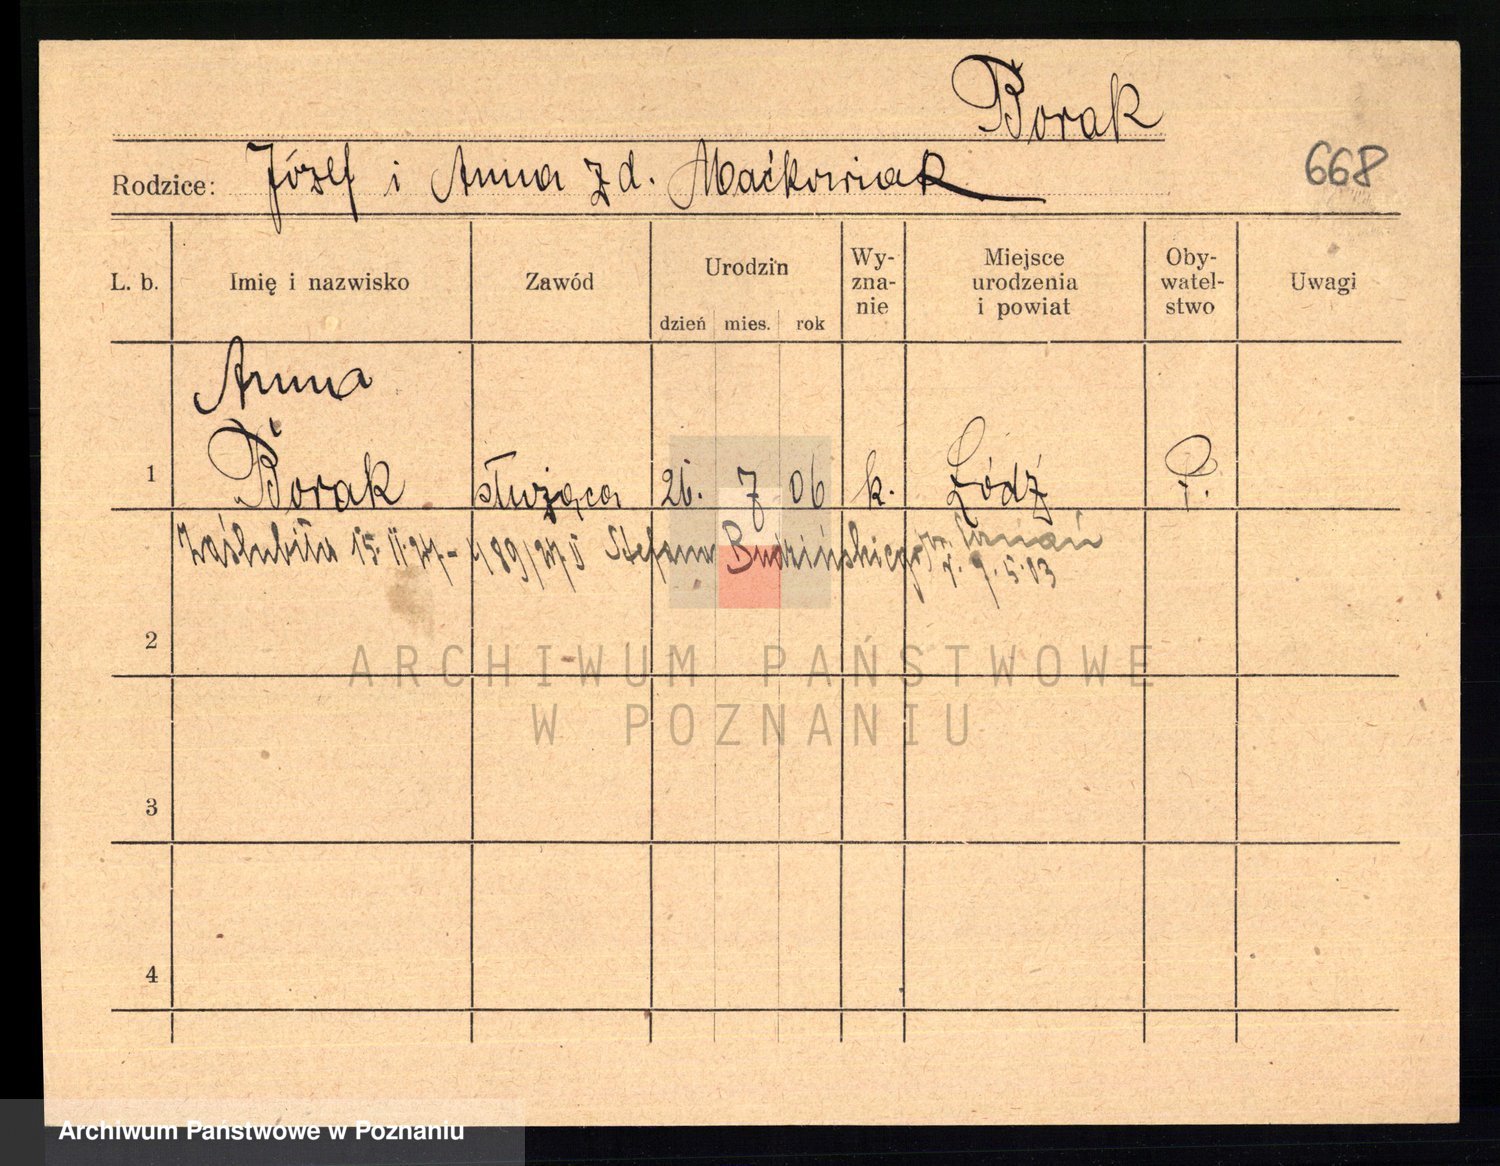 Borak
Rodzice: Józef i Anna z d. Maćkowiak
668
L. b. Imię i nazwisko Zawód Urodzin dzień mies. rok Wy-zna-nie Miejsce urodzenia i powiat Oby-watel-stwo Uwagi
Anna
1 Borak służąca 26. 7 06 k. Łódź P.
Zaślubiła 15. 11. 27 - 489/27 Stefana Budzińskiego
9.5.03
2
ARCHIWUM PAŃSTWOWE
W POZNANIU
3
4
Archiwum Państwowe w Poznaniu